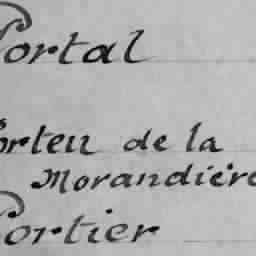 Portal
Porteu de la
Morandière
Portier